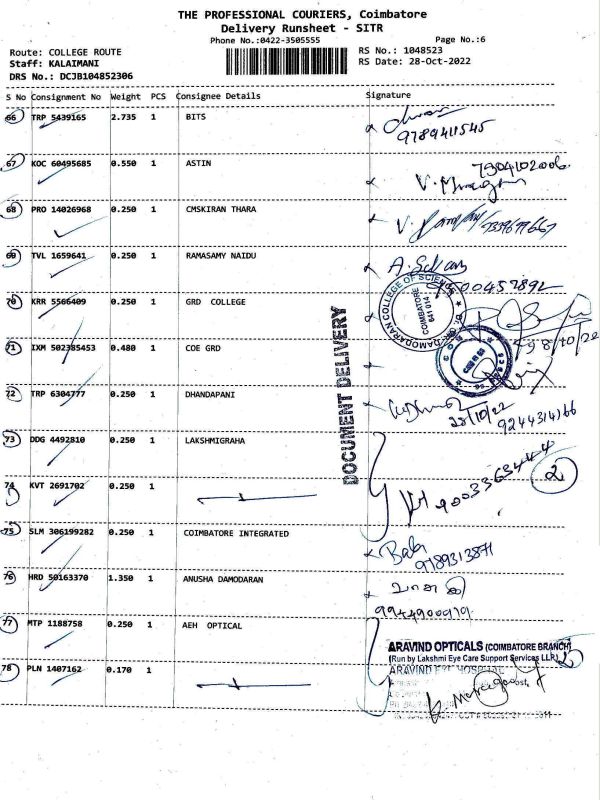 THE PROFESSIONAL COURIERS, Coimbatore
Delivery Runsheet - SITR
Phone No.:0422-3505555 Page No.:6
Route: COLLEGE ROUTE RS No.: 1048523
Staff: KALAIMANI RS Date: 28-Oct-2022
DRS No.: DCJB104852306
S No Consignment No Weight PCS Consignee Details Signature
66 TRP 5439165 2.735 1 BITS
9789411545
67 KOC 60495685 0.550 1 ASTIN 7904102006
68 PRO 14026968 0.250 1 CMSKIRAN THARA
7339677667
69 TVL 1659641 0.250 1 RAMASAMY NAIDU A. Selvam
70 KRR 5566409 0.250 1 GRD COLLEGE
DAMODARAN COLLEGE OF SCIENCE
COIMBATORE
641 014
71 IXM 502385453 0.480 1 COE GRD
DOCUMENT DELIVERY
72 TRP 6304777 0.250 1 DHANDAPANI
28/10/22
9244314166
73 DDG 4492810 0.250 1 LAKSHMIGRAHA
2
74 KVT 2691702 0.250 1
9003363444
75 SLM 306199282 0.250 1 COIMBATORE INTEGRATED
Bala
9789313871
76 HRD 50163370 1.350 1 ANUSHA DAMODARAN
9944900979
77 MTP 1188758 0.250 1 AEH OPTICAL
ARAVIND OPTICALS (COIMBATORE BRANCH)
(Run by Lakshmi Eye Care Support Services LLP)
78 PLN 1407162 0.170 1 ARAVIND EYE HOSPITAL